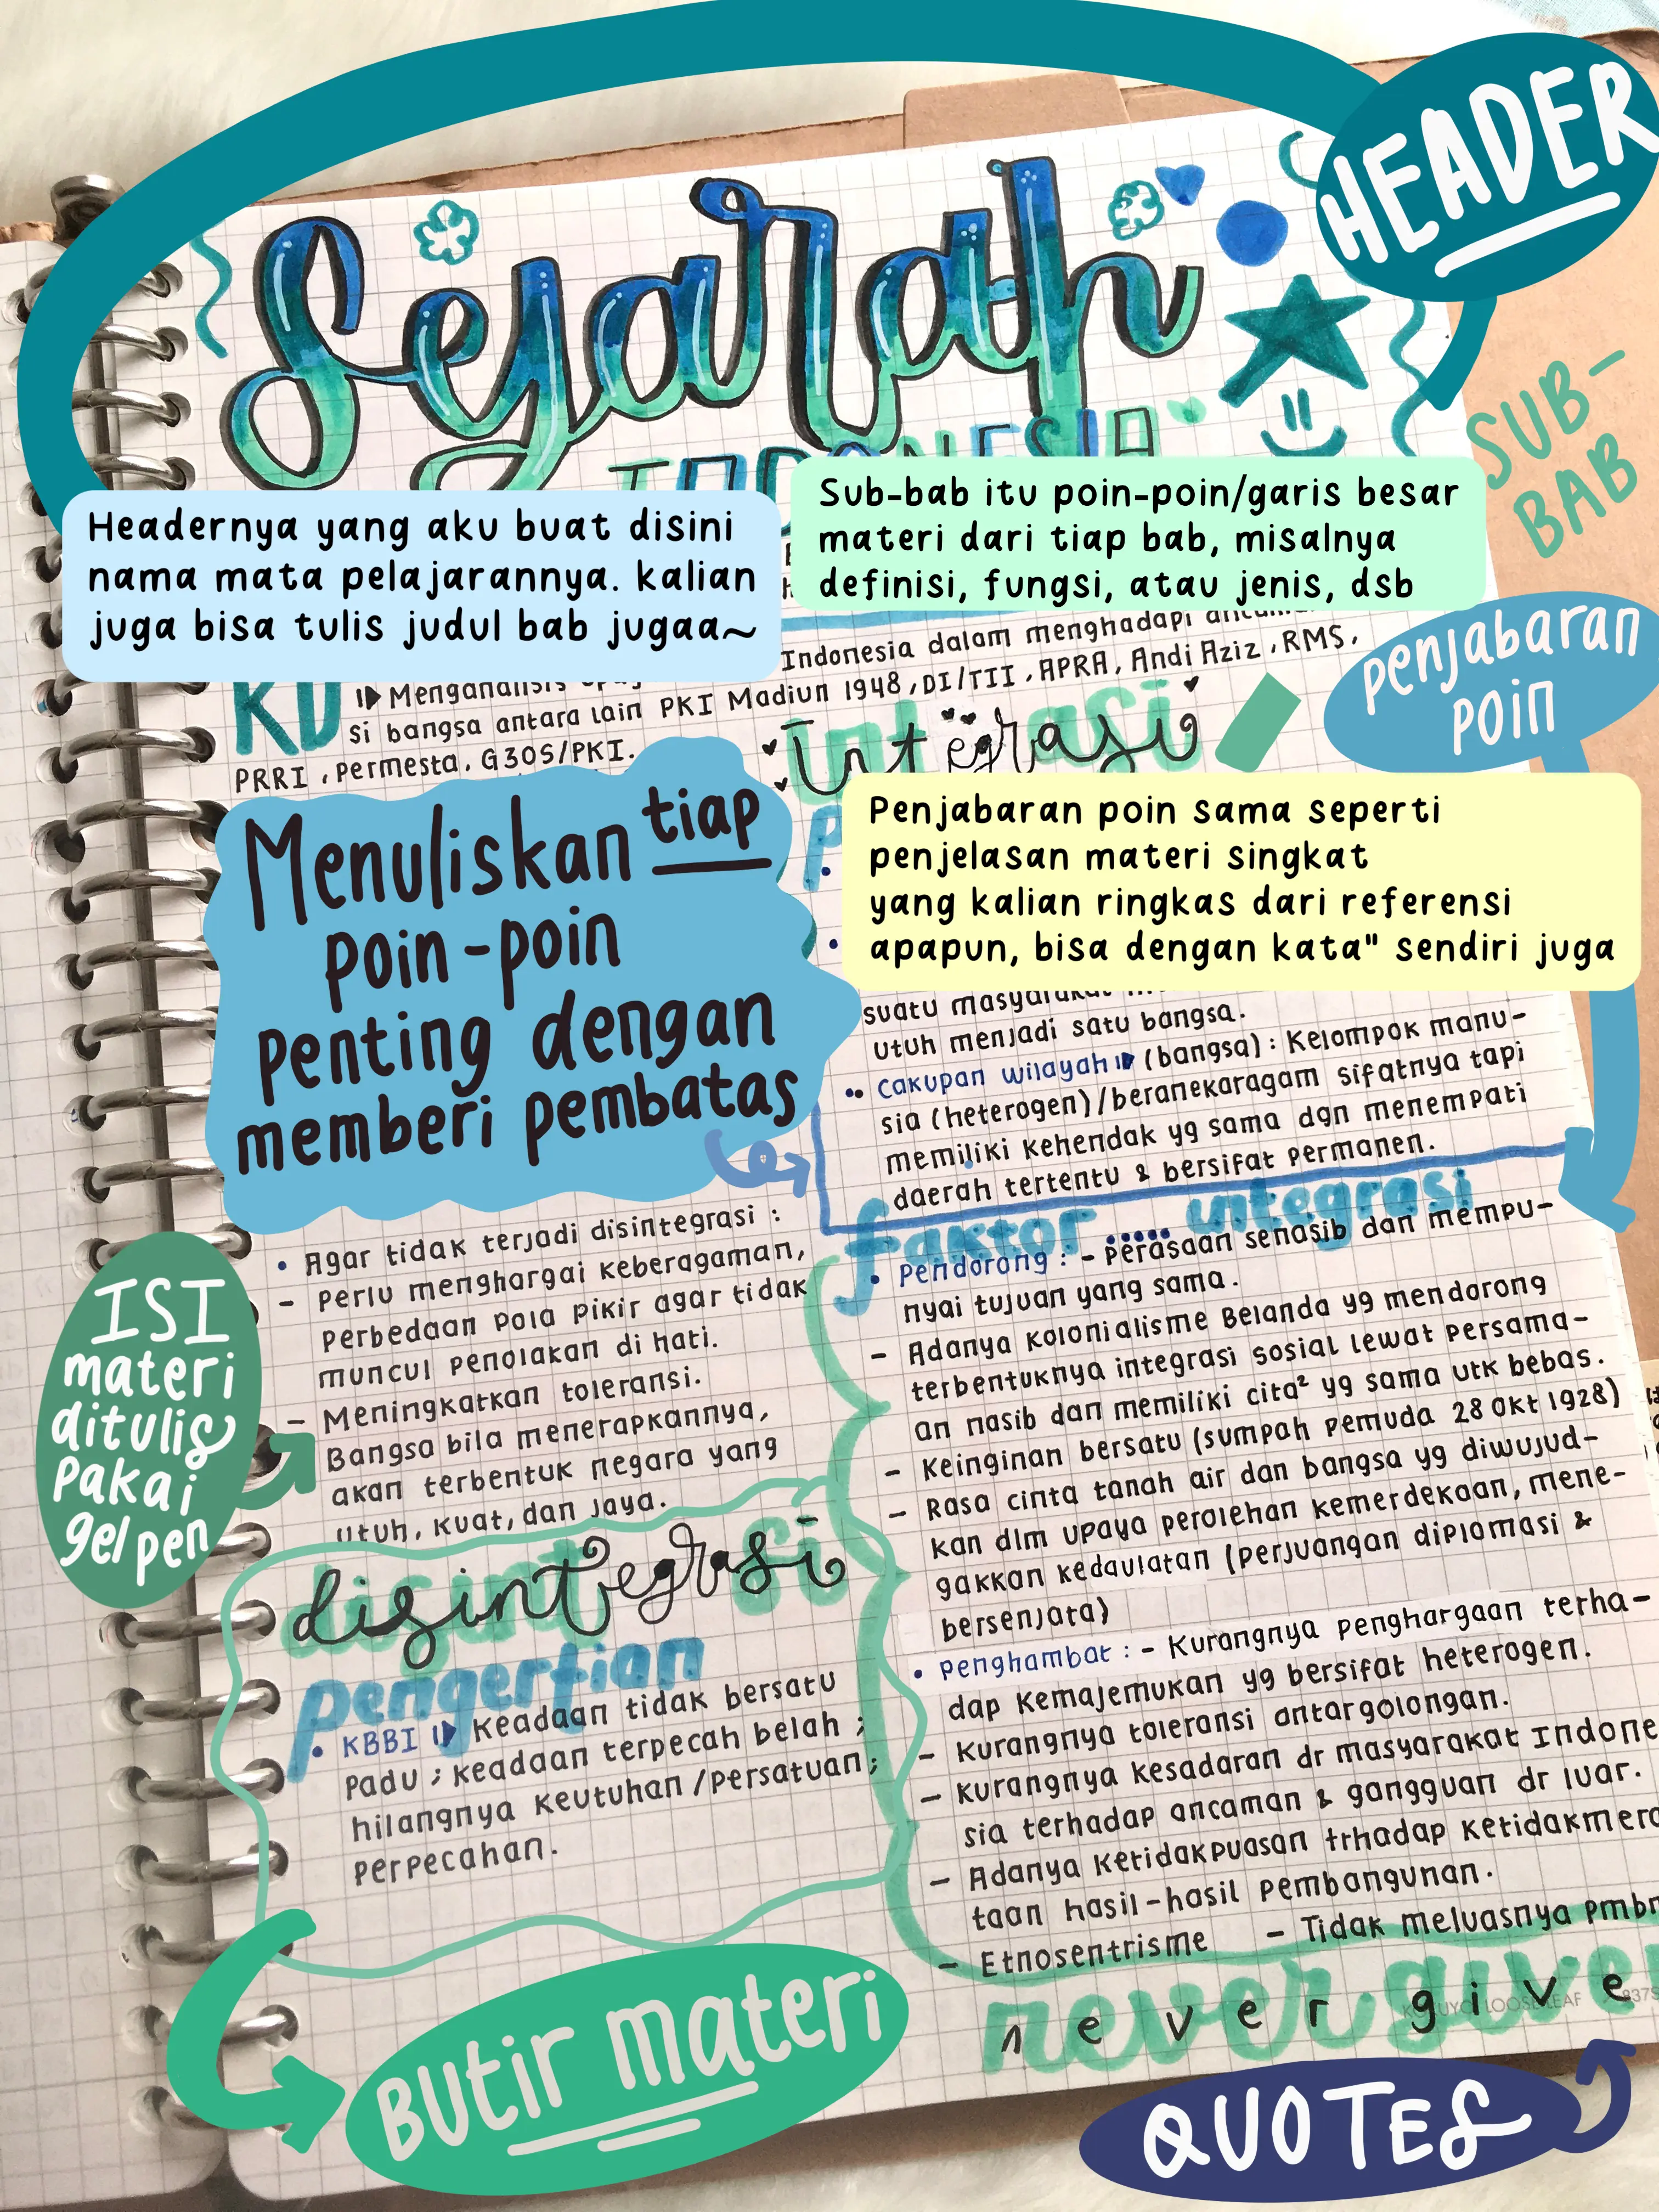 HEADER
Sejarah
INDONESIA
SUB-
BAB
Headernya yang aku buat disini
nama mata pelajarannya. kalian
juga bisa tulis judul bab jugaa~
Sub-bab itu poin-poin/garis besar
materi dari tiap bab, misalnya
definisi, fungsi, atau jenis, dsb
KD
Menganalisis
Indonesia dalam menghadapi
si bangsa antara lain PKI Madiun 1948, DI/TII, APRA, Andi Aziz, RMS,
PRRI, Permesta, G30S/PKI.
Integrasi
penjabaran
poin
Penjabaran poin sama seperti
penjelasan materi singkat
yang kalian ringkas dari referensi
apapun, bisa dengan kata" sendiri juga
Menuliskan tiap
poin-poin
penting dengan
memberi pembatas
suatu masyarakat
utuh menjadi satu bangsa.
• Cakupan wilayah (bangsa) : Kelompok manu-
sia (heterogen)/beranekaragam sifatnya tapi
memiliki kehendak yg sama dgn menempati
daerah tertentu & bersifat permanen.
faktor ..... integrasi
• Pendorong : - Perasaan senasib dan mempu-
nyai tujuan yang sama.
- Adanya Kolonialisme Belanda yg mendorong
terbentuknya integrasi sosial lewat persama-
an nasib dan memiliki cita² yg sama utk bebas.
- Keinginan bersatu (sumpah pemuda 28 Okt 1928)
- Rasa cinta tanah air dan bangsa yg diwujud-
kan dlm upaya perolehan kemerdekaan, mene-
gakkan kedaulatan (perjuangan diplomasi &
bersenjata)
• Penghambat : - Kurangnya penghargaan terha-
dap kemajemukan yg bersifat heterogen.
- Kurangnya toleransi antargolongan.
- Kurangnya kesadaran dr masyarakat Indone
sia terhadap ancaman & gangguan dr luar.
- Adanya ketidakpuasan trhadap ketidakmera
taan hasil-hasil pembangunan.
- Etnosentrisme - Tidak meluasnya pmbn
never give
never give
KOKUYO LOOSE LEAF
QUOTES
ISI
materi
ditulis
pakai
gel pen
• Agar tidak terjadi disintegrasi :
- Perlu menghargai keberagaman,
perbedaan pola pikir agar tidak
muncul penolakan di hati.
- Meningkatkan toleransi.
Bangsa bila menerapkannya,
akan terbentuk negara yang
utuh, kuat, dan jaya.
disintegrasi
pengertian
• KBBI Keadaan tidak bersatu
padu ; keadaan terpecah belah ;
hilangnya keutuhan /persatuan ;
perpecahan.
Butir materi